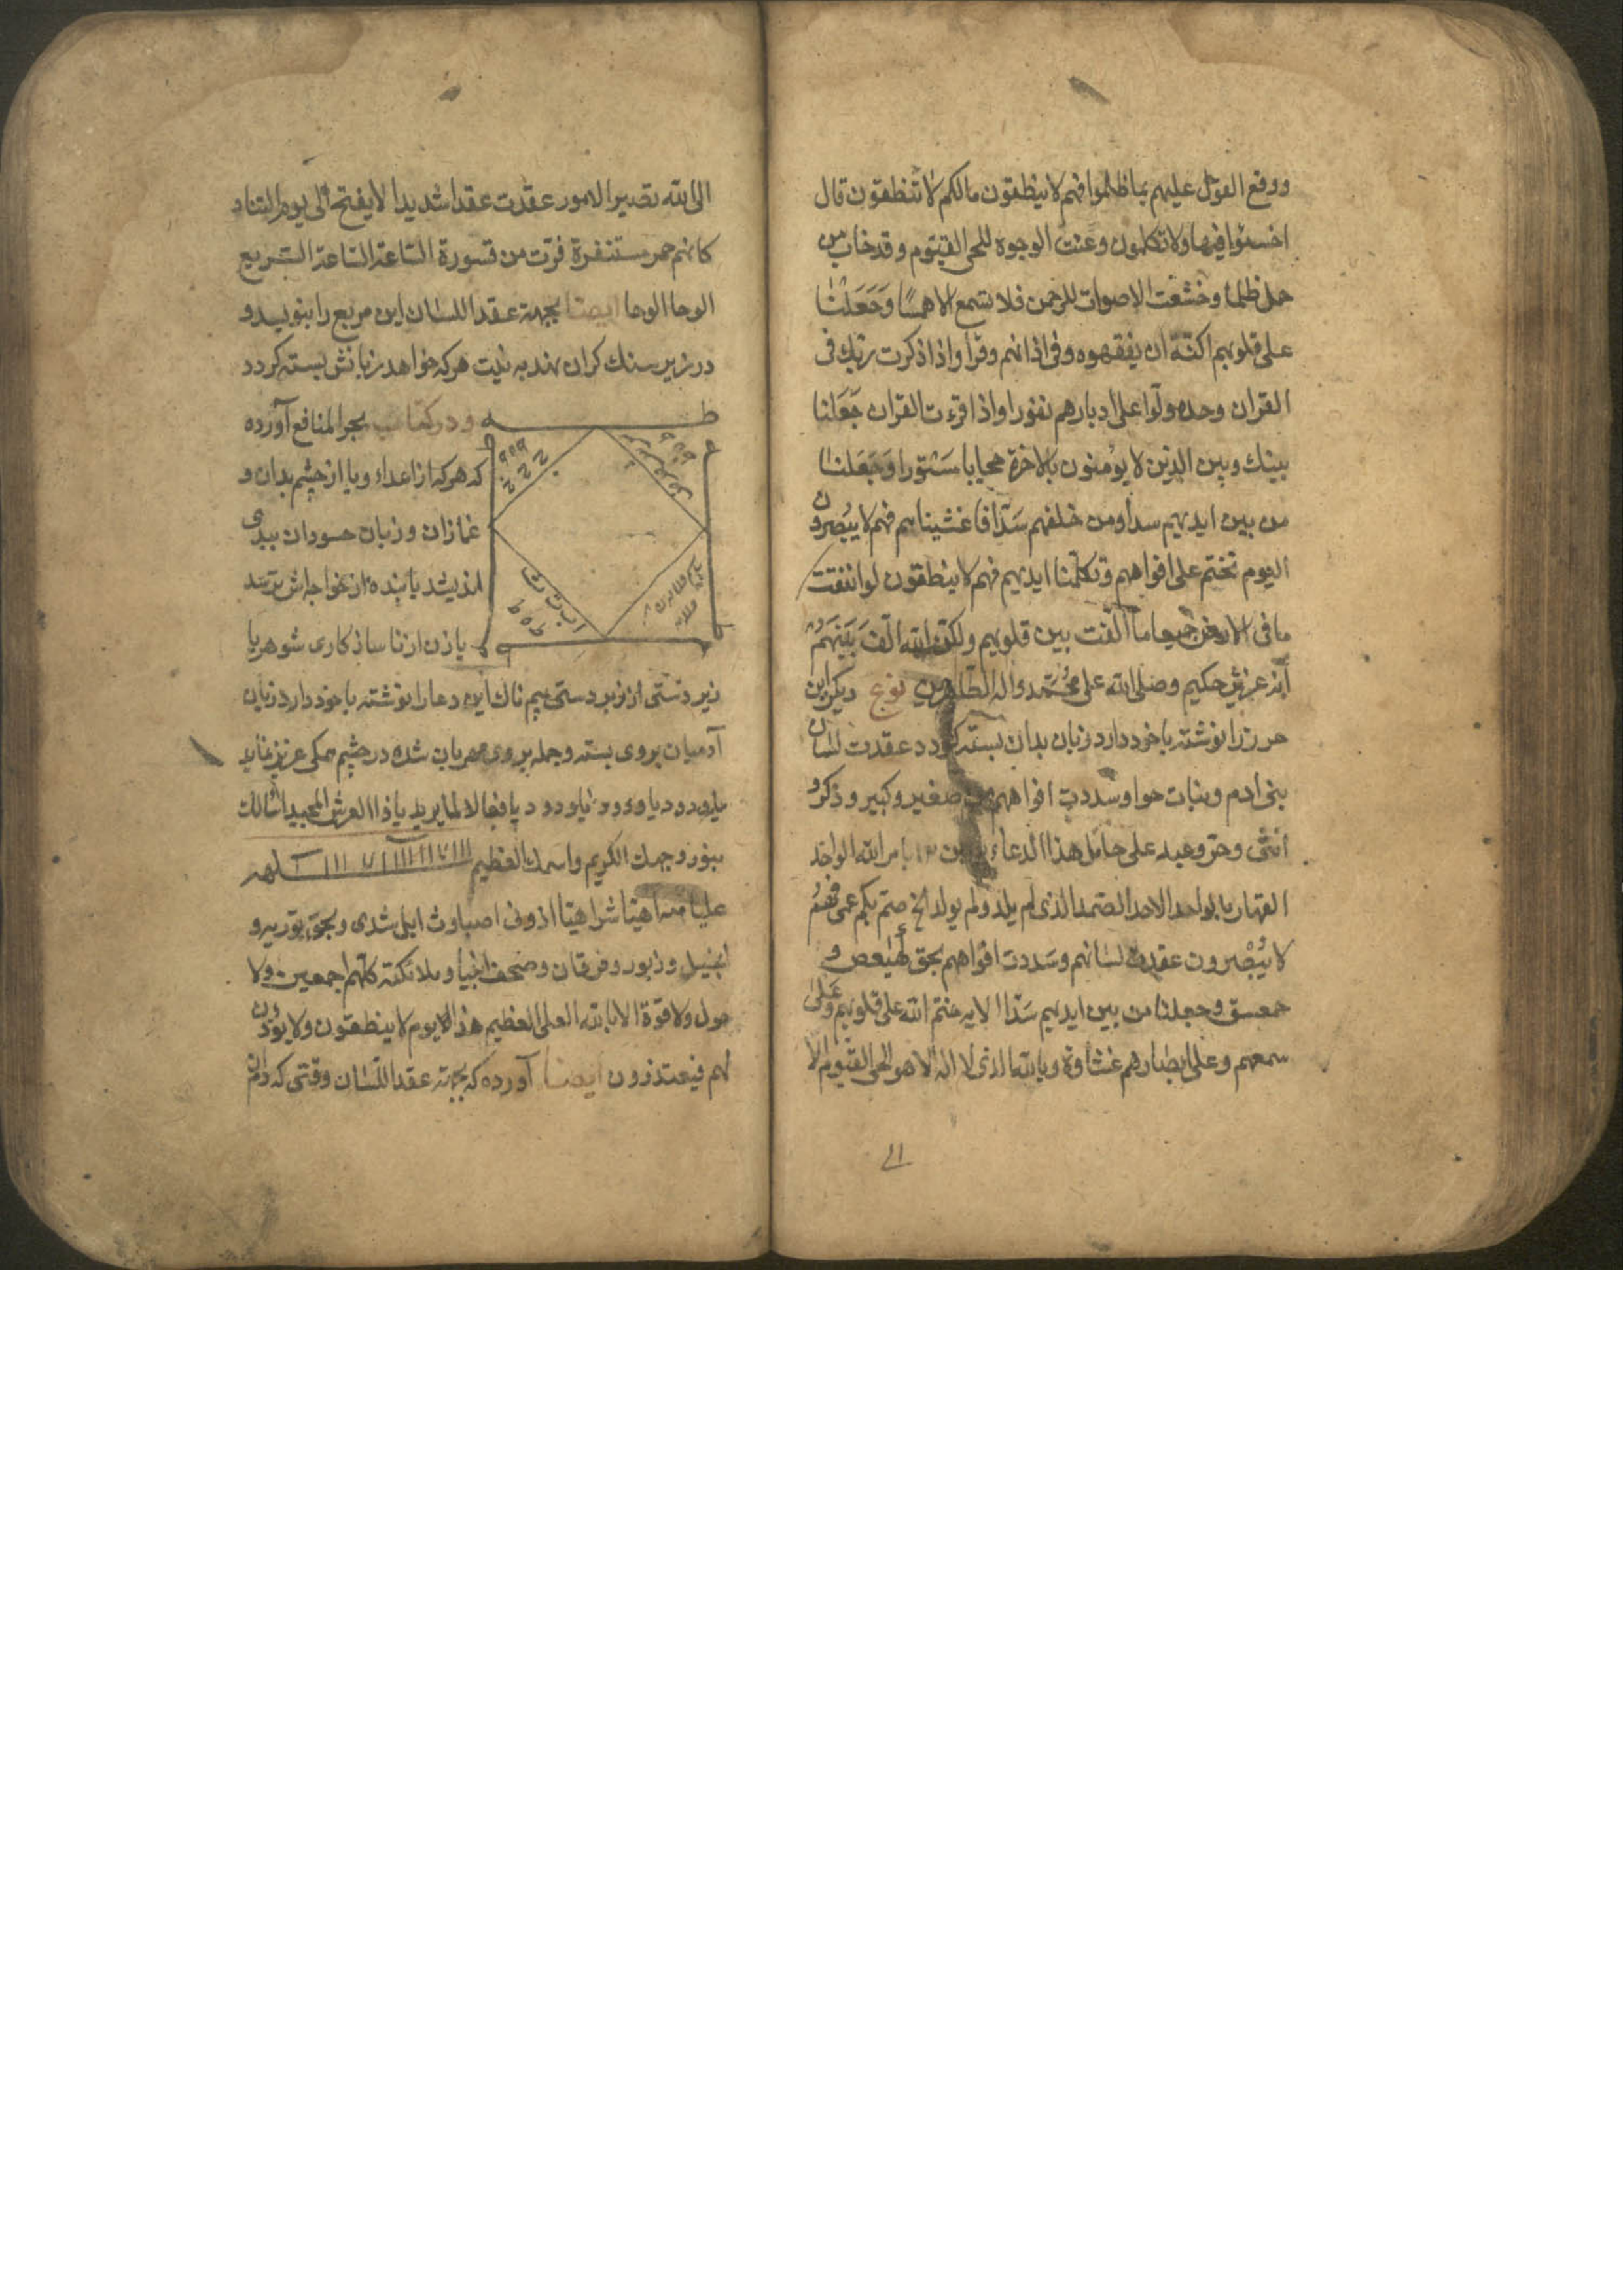 ووقع القول عليهم بما ظلموا فهم لا ينطقون مالكم لا تنطقون قال
اخسئوا فيها ولا تكلمون وعنت الوجوه للحى القيوم وقد خاب من
حمل ظلما وخشعت الاصوات للرحمن فلا تسمع الا همسًا وَجَعَلْنا
على قلوبهم اكنّة ان يفقهوه وفى اذانهم وقرا واذا ذكرت ربك فى
القران وحده ولّوا على ادبارهم نفورا واذا قرءت القران جَعَلنا
بينك وبين الذين لا يؤمنون بالاخرة حجابا مَستورا وَجَعَلنا
من بين ايديهم سدا ومن خلفهم سَدّا فاغشيناهم فهم لا يُبْصرون
اليوم نختم على افواههم وتكلّمنا ايديهم فهم لا ينطقون لو انفقت
ما فى الارض جميعا ما الّفت بين قلوبهم ولكن الله الّفَ بَيْنَهُمْ
انّه عزيز حكيم وصلى الله على محُمّد واله الطاهرين نوع ديكر اين
حرز را نوشته با خود دارد زبان بدان بسته كردد عقدت لسان
بنى ادم وبنات حوا وسددت افواههم صغير وكبير وذكر و
انثى وحرّ وعبد على حامل هذا الدعاء بامر الله الواحد
القهار يا بواحد الاحد الصّمد الذى لم يلد ولم يولد الخ صمّ بكم عمى فهُمْ
لا يُبْصرون عقدت لسانهم وسَددت افواههم بحق كهٰيٰعص و
حمعسق وجعلنا من بين ايديهم سَدّا الايه ختم الله على قلوبهم وَعَلى
سمعهم وعلى ابصارهم غشاوة وبالله الذى لا اله الا هو الحى القيّوم الا
الى الله تصير الامور عقدت عقدا شديدا لا يفتح الى يوم التناد
كانهم حمر مستنفرة فرّت من قسورة السّاعة السّاعة السّريع
الوحا الوحا ايضا بجهة عقد اللسان اين مربع را بنويسد و
در زير سنك كران نهد به نيت هركه خواهد زبانش بسته كردد
ودر كتاب بحر المنافع آورده
كه هركه از اعداء ويا از چشم بدان و
غمازان وزبان حسودان ببدى
انديشد يا بنده از خواجه اش ترسد
يا زن از ناسازكارى شوهر يا
زير دستى از زبر دستى بيم ناك اين دعا را نوشته با خود دارد زبان
آدميان بروى بسته وجمله بروى مهربان شده در چشم همكى عزيز نمايد
يا فعالا لما يريد يا ذا العرش المجيد اسالك
بنور وجهك الكريم واسمك العظيم
اهيّا شراهيّا اذونى اصباوث ايل شدى وبحق توريه و
انجيل وزبور وفرقان وصحف انبيا وملائكته كلّهم اجمعين ولا
حول ولا قوة الا بالله العلى العظيم هذا الايوم لا ينطقون ولا يؤذن
لهم فيعتذرون ايضا آورده كه بجهة عقد اللسان وقتى كه